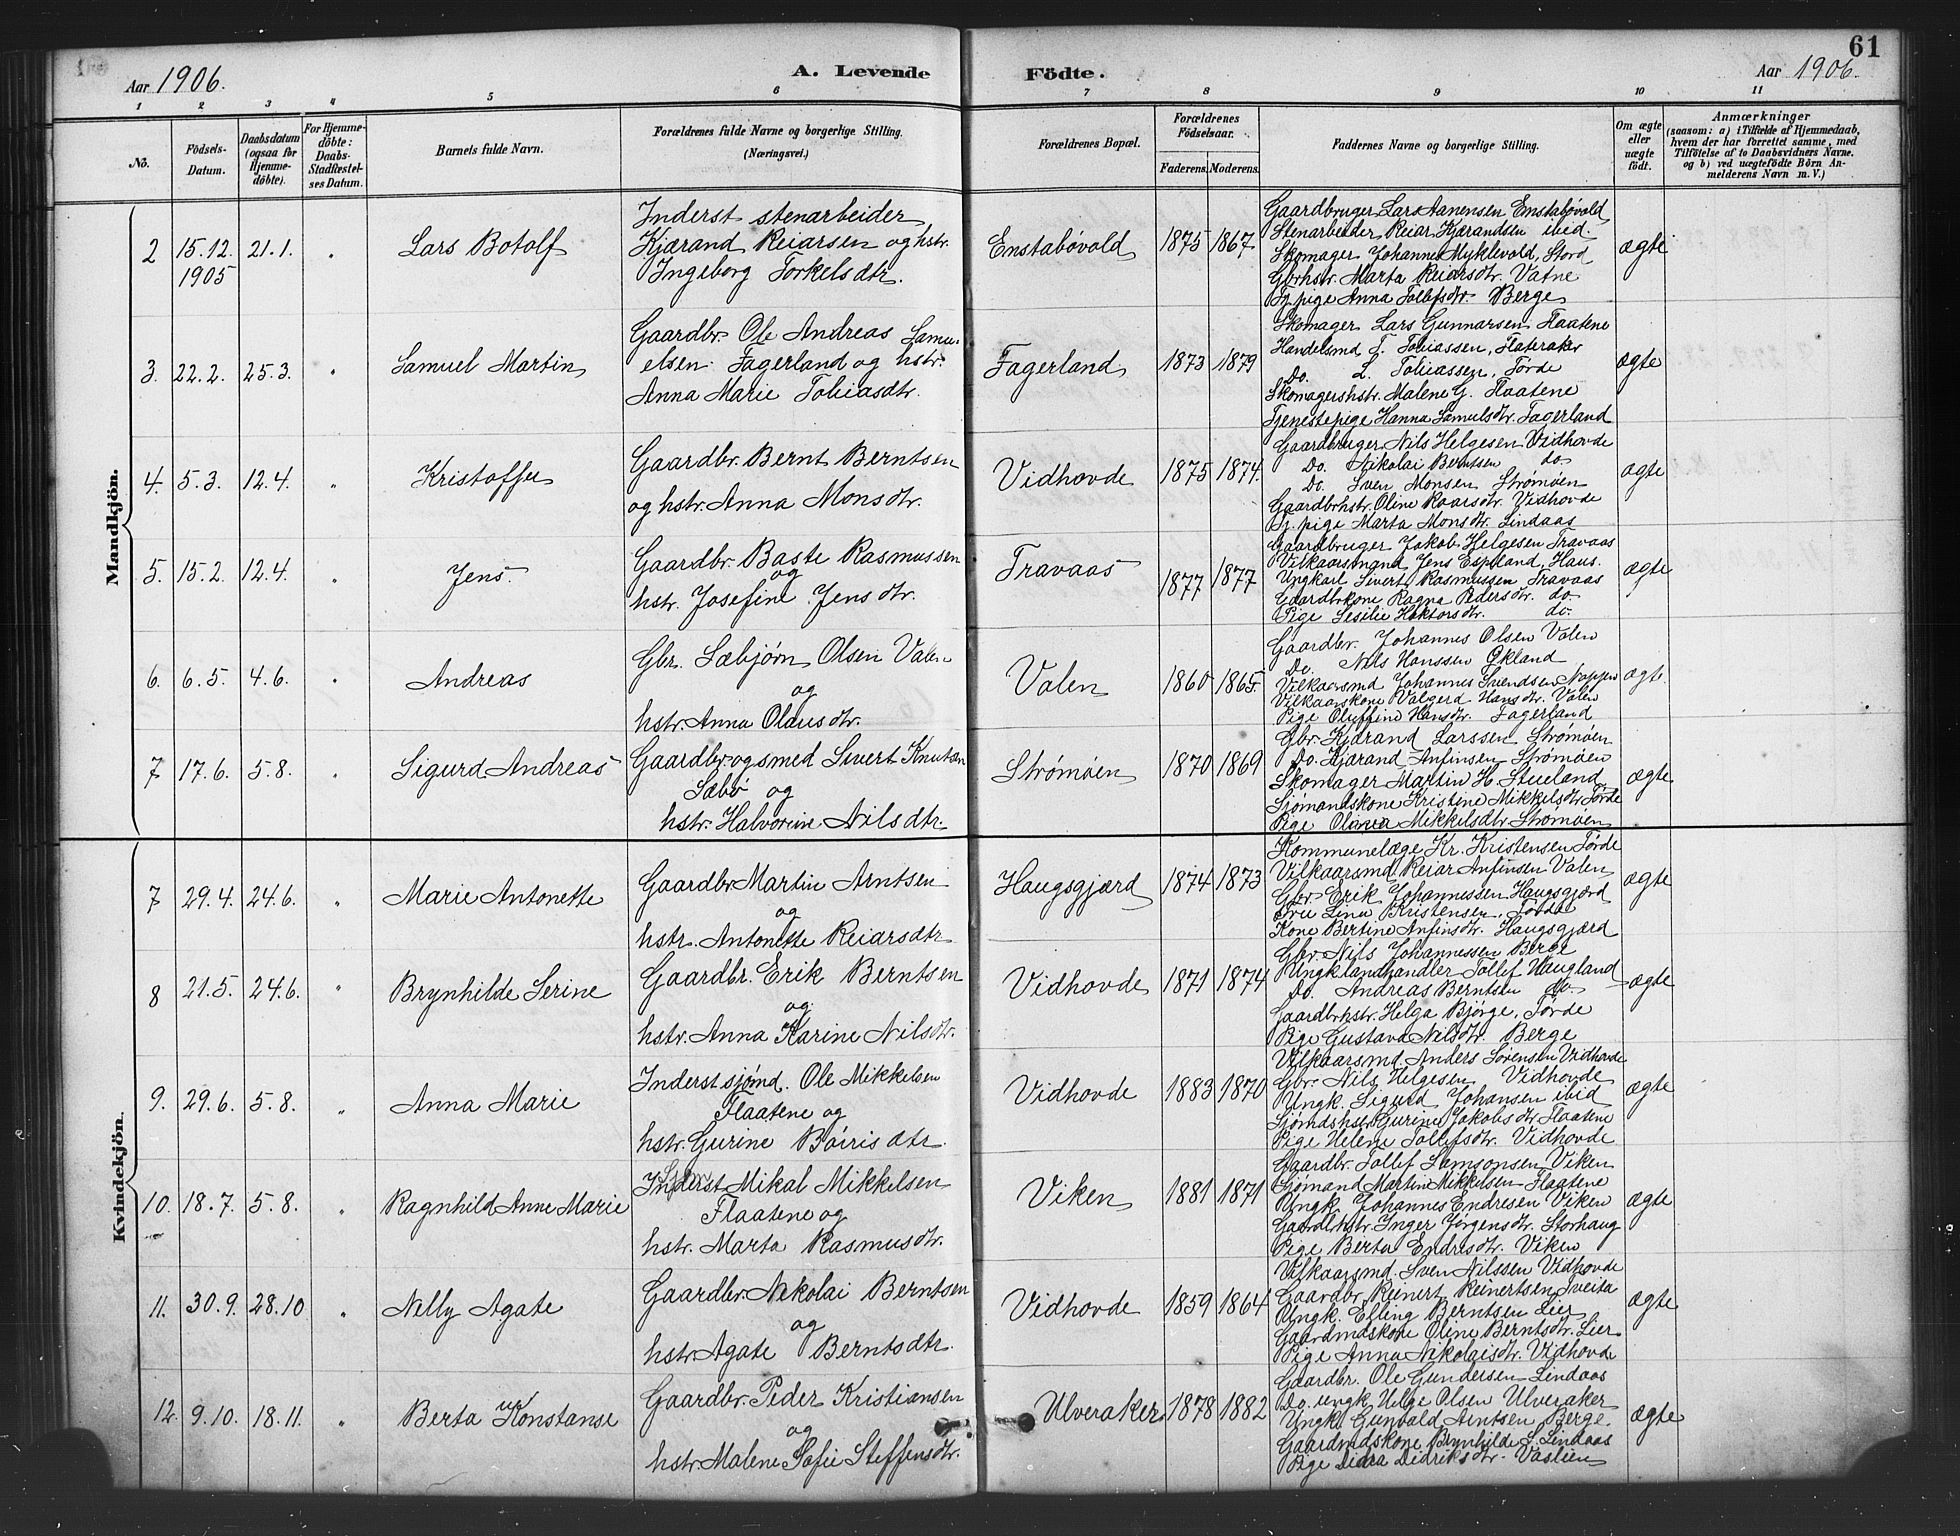 61
Aar 1906.
A. Levende Födte.
Aar 1906.
1 2 3 4 5 6 7 8 9 10 11
No.
Födsels-Datum.
Daabsdatum (ogsaa for Hjemme-döbte).
For Hjemme-döbte: Daabs-Stadfæstel-ses Datum.
Barnets fulde Navn.
Forældrenes fulde Navne og borgerlige Stilling.
(Næringsvei.)
Forældrenes Bopæl.
Forældrenes Födselsaar.
Faderens. Moderens.
Faddernes Navne og borgerlige Stilling.
Om ægte eller uægte födt.
Anmærkninger
(saasom: a) i Tilfælde af Hjemmedaab,
hvem der har forrettet samme, med
Tilföielse af to Daabsvidners Navne,
og b) ved uægtefödte Börn An-
melderens Navn m. V.)
Mandkjön.
2 15.12. 1905 21.1. " Lars Botolf
Inderst stenarbeider
Kjærand Reiarsen og hstr.
Ingeborg Torkelsdtr.
Enstabøvold 1875 1867
Gaardbruger Lars Aanensen Enstabøvold
Stenarbeider Reiar Kjærandsen ibid.
Skomager Johannes Myklevold, Stord
Gbrhstr. Marta Reiarsdtr. Vatne
Tj. pige Anna Tollefsdtr. Berge
ægte
3. 22.2. 25.3. " Samuel Martin
Gaardbr. Ole Andreas Samu-
elsen Fagerland og hstr.
Anna Marie Tobiasdtr.
Fagerland 1873 1879
Skomager Lars Gunnarsen Flaatene
Handelsmd T. Tobiassen, Flateraker
Do. L. Tobiassen, Førde
Skomagershstr. Malene G. Flaatene
Tjenestepige Hanna Samuelsdtr. Fagerland
ægte
4. 5.3. 12.4. " Kristoffer
Gaardbr. Bernt Berntsen
og hstr. Anna Monsdtr.
Vidhovde 1875 1874.
Gaardbruger Nils Helgesen Vidhovde
Do. Nikolai Berntsen do.
Do. Sven Monsen Strømøen
Gaardbrhstr. Oline Roarsdtr. Vidhovde
Tj. pige Marta Monsdtr. Lindaas
ægte
5. 15.2. 12.4. " Jens.
Gaardbr. Baste Rasmussen
og
hstr. Josefine Jensdtr.
Travaas 1877 1877
Gaardbruger Jakob Helgesen Travaas
Vilkaarsmand Jens Espeland, Haus.
Ungkarl Sivert Rasmussen Travaas
Gaardbrkone Ragna Pedersdtr. do
Pige Sesilie Hektorsdtr. do.
ægte
6. 6.5. 4.6. " Andreas
Gbr. Sæbjørn Olsen Valen
og
hstr. Anna Olausdtr.
Valen 1860 1865.
Gaardbr. Johannes Olsen Valen
Do. Nils Hanssen Økland
Vilkaarsmd Johannes Svendsen Nappen
Vilkaarskone Valgerd Hansdtr. Valen
Pige Oluffine Hansdtr. Fagerland
ægte.
7 17.6. 5.8. " Sigurd Andreas
Gaardbr. og smed Sivert Knutsen
Sæbø og
hstr. Halvorine Nilsdtr.
Strømøen 1870 1869
Gbr. Kjærand Larssen Strømøen
Do. Kjærand Anfinsen Strømøen
Skomager Martin H. Stueland
Sjømandskone Kristene Mikkelsdtr. Førde
Pige Olava Mikkelsdtr Strømøen
ægte
Kvindekjön.
7 29.4. 24.6. " Marie Antonette
Gaardbr. Martin Arntsen
og
hstr. Antonette Reiarsdtr
Haugsgjærd 1874 1873
Kommunelæge Kr. Kristensen Førde
Vilkaarsmd Reiar Anfinsen Valen
Gbr. Erik Johannessen Haugsgjærd
Frue Lina Kristensen, Førde
Kone Bertine Anfinsdtr. Haugsgjærd
ægte
8 21.5. 24.6. " Brynhilde Serine
Gaardbr. Erik Berntsen
og
hstr. Anna Karine Nilsdtr.
Vidhovde 1871 1874
Gbr. Nils Johannessen Berge
Ungk. landhandler Tollef Haugland
Do. Andreas Berntsen do.
Gaardbrhstr. Helga Bjørge, Førde
Pige Gustava Nilsdtr. Berge
ægte
9. 29.6. 5.8. " Anna Marie
Inderst sjømd. Ole Mikkelsen
Flaatene og
hstr. Gurine Børrisdtr.
Vidhovde 1883 1870
Vilkaarsmd Anders Sørensen Vidhovde
Gbr. Nils Helgesen Vidhovde
Ungk. Sigurd Johansen ibid
Sjømdshstr. Gurine Jakobsdtr. Flaatene
Pige Helene Tollefsdtr. Vidhovde
ægte
10. 18.7. 5.8. " Ragnhild Anne Marie
Inderst Mikal Mikkelsen
Flaatene og
hstr. Marta Rasmusdtr.
Viken 1881 1871
Gaardbr. Tollef Samsonsen Viken
Sjømand Martin Mikkelsen Flaatene
Ungk. Johannes Endresen Viken
Gaardbrhstr. Inger Jørgensdtr. Storhaug
Pige Berta Endresdtr. Viken
ægte
11. 30.9. 28.10 " Nelly Agate
Gaardbr. Nikolai Berntsen
og
hstr. Agate Berntsdtr.
Vidhovde 1859 1864
Vilkaarsmd. Sven Nilssen Vidhovde
Gaardbr. Reinert Reinertsen Sveita
Ungk. Elling Berntsen Lier
Gaardmdskone Oline Berntsdtr. Lier
Pige Anna Nikolaisdtr. Vidhovde
ægte
12 9.10. 18.11. " Berta Konstanse
Gaardbr. Peder Kristiansen
og
hstr. Malene Sofie Steffensdtr.
Ulveraker 1878 1882
Gaardbr. Ole Gundersen Lindaas
Do. ungk. Helge Olsen Ulveraker
Ungk. Gunvald Arntsen Berge.
Gaardmdskone Brynhilde S. Lindaas
Pige Didrikke Didriksdtr. Vaslien
ægte